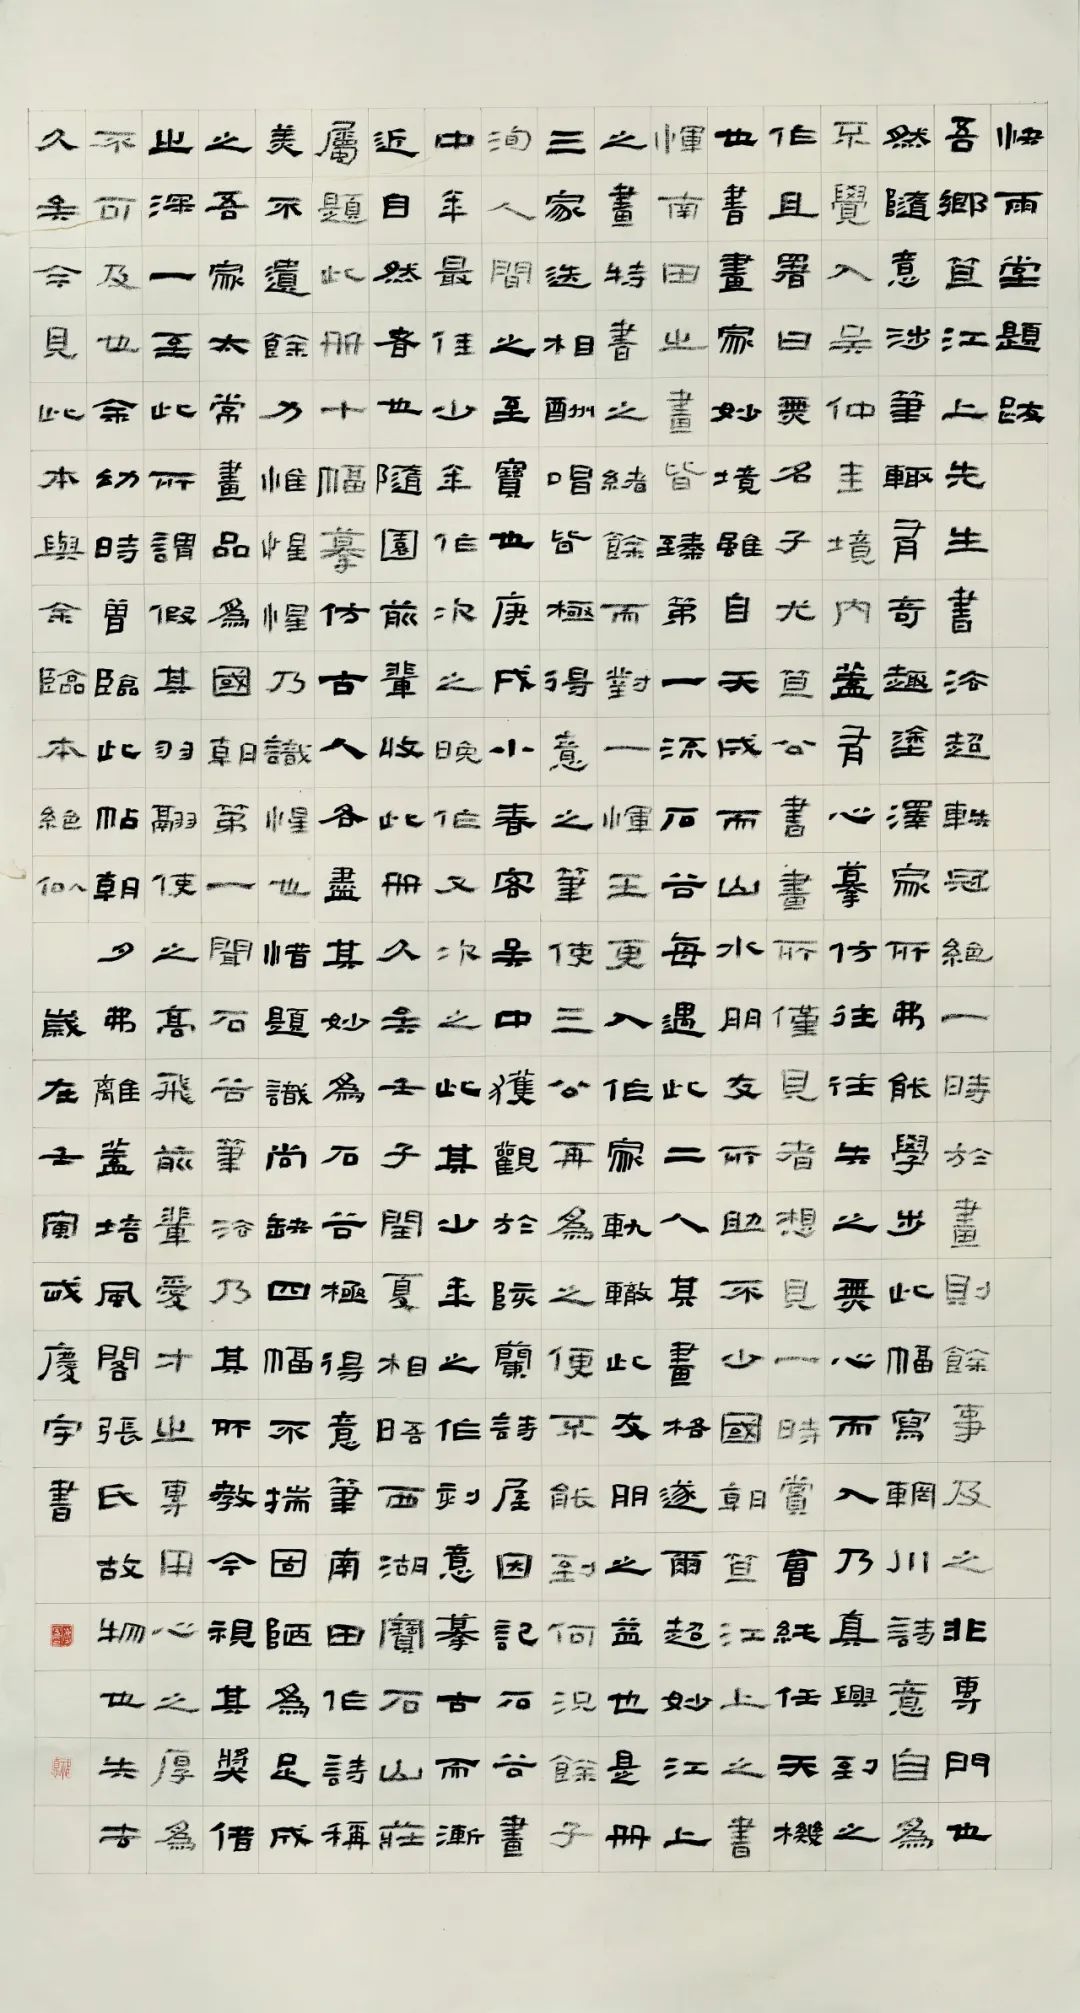 快雨堂題跋
吾鄉笪江上先生書法超軼冠絕一時於畫則餘事及之非專門也
然隨意涉筆輒有奇趣塗澤家所弗能學步此幅寫輞川詩意自為
不覺入吳仲圭境內蓋有心摹仿往往失之無心而入乃真興到之
作且署曰無名子尤笪公書畫所僅見者想見一時賞會純任天機
也書畫家妙境雖自天成而山水朋友所助不少國朝笪江上之書
惲南田之畫皆臻第一流石谷每遇此二人其畫格遂爾超妙江上
之畫特書之緒餘而對一惲王更入作家軌轍此友朋之益也是冊
三家迭相酬唱皆極得意之筆使三公再為之便不能到何況餘子
洵人間之至寶也庚戌小春客吳中獲觀於陔蘭詩屋因記石谷畫
中年最佳少年作次之晚作又次之此其少年之作刻意摹古而漸
近自然者也隨園前輩收此冊久矣壬子閏夏相晤西湖寶石山莊
屬題此冊十幅摹仿古人各盡其妙為石谷極得意筆南田作詩稱
美不遺餘力惟惺惺乃識惺也惜題識尚缺四幅不揣固陋為足成
之吾家太常畫品為國朝第一聞石谷筆法乃其所教今視其獎借
之深一至此所謂假其羽翮使之高飛前輩愛才之專用心之厚為
不可及也余幼時曾臨此帖朝夕弗離蓋培風閣張氏故物也失去
久矣今見此本與余臨本絕似 歲在壬寅慶宇書